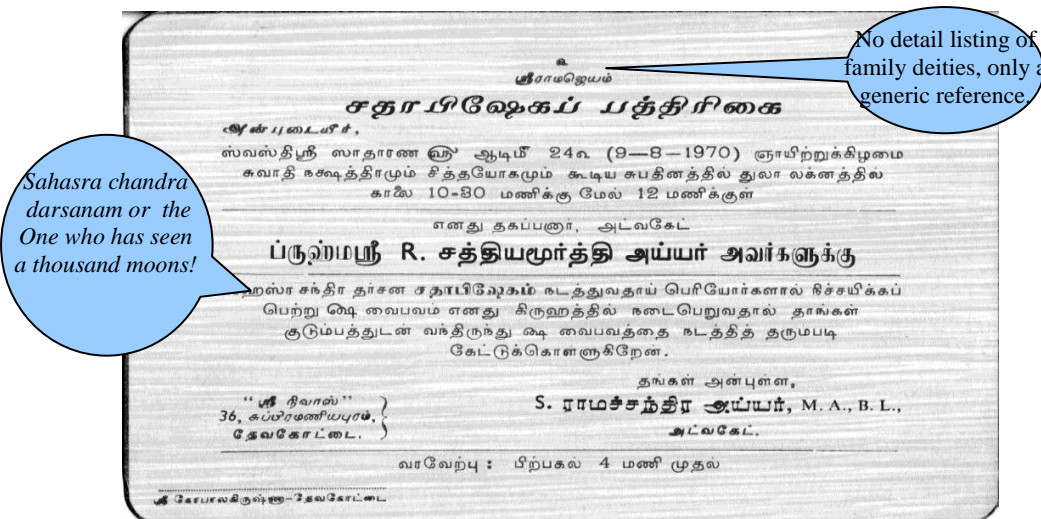 உ
ஸ்ரீராமஜெயம்
No detail listing of
family deities, only a
generic reference.
சதாபிஷேகப் பத்திரிகை
அன்புடையீர்,
ஸ்வஸ்திஸ்ரீ ஸாதாரண ௵ ஆடிமீ 24௳ (9—8—1970) ஞாயிற்றுக்கிழமை
சுவாதி நக்ஷத்திரமும் சித்தயோகமும் கூடிய சுபதினத்தில் துலா லக்னத்தில்
காலை 10-30 மணிக்கு மேல் 12 மணிக்குள்
எனது தகப்பனார், அட்வகேட்
ப்ருஹ்மஸ்ரீ R. சத்தியமூர்த்தி அய்யர் அவர்களுக்கு
Sahasra chandra
darsanam or the
One who has seen
a thousand moons!
ஹஸ்ர சந்திர தர்சன சதாபிஷேகம் நடத்துவதாய் பெரியோர்களால் நிச்சயிக்கப்
பெற்று ௸ வைபவம் எனது கிருஹத்தில் நடைபெறுவதால் தாங்கள்
குடும்பத்துடன் வந்திருந்து ௸ வைபவத்தை நடத்தித் தரும்படி
கேட்டுக்கொள்ளுகிறேன்.
தங்கள் அன்புள்ள,
S. ராமச்சந்திர அய்யர், M. A., B. L.,
அட்வகேட்.
“ ஸ்ரீ நிவாஸ் ”
36, சுப்பிரமணியபுரம்,
தேவகோட்டை.
வரவேற்பு : பிற்பகல் 4 மணி முதல்
ஸ்ரீ கோபாலகிருஷ்ணா-தேவகோட்டை